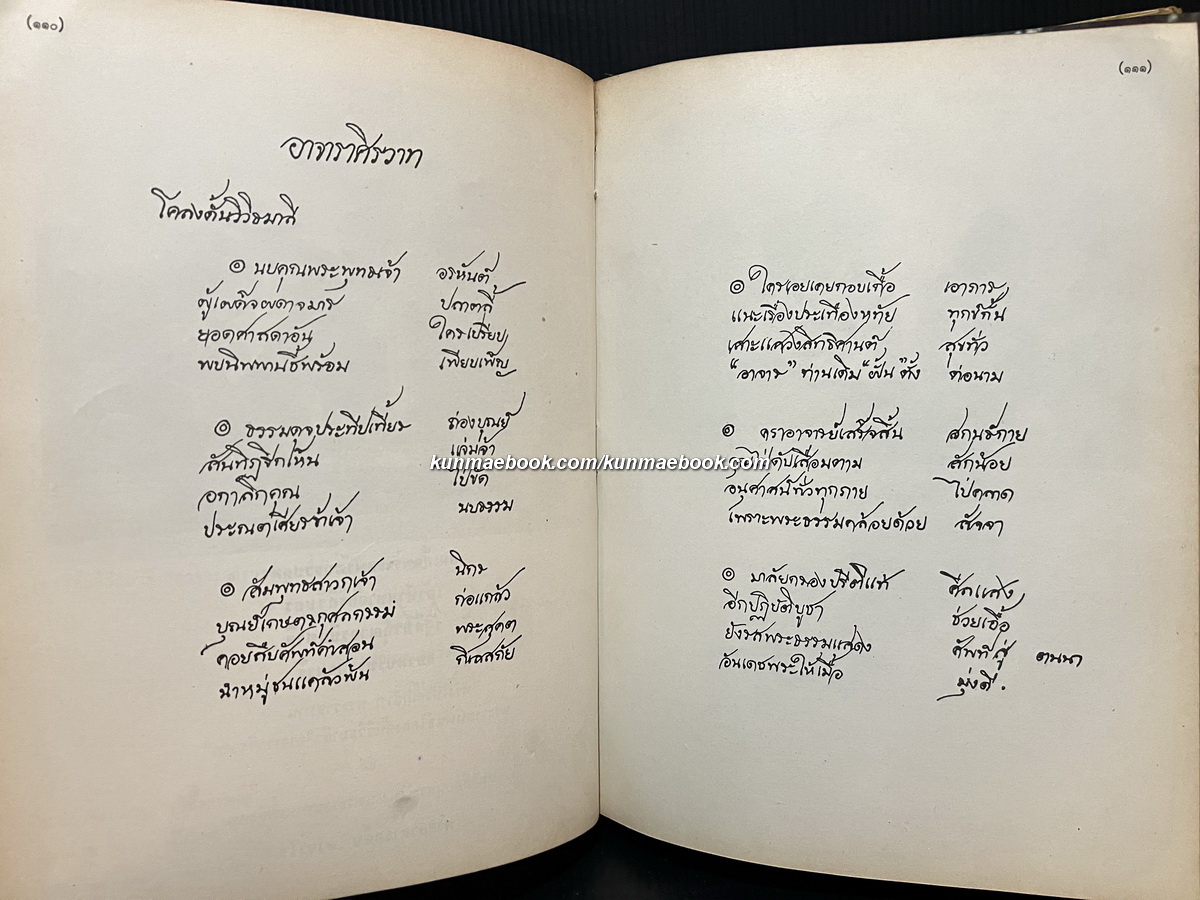 (๑๑๐)
อาจาราศิรวาท
โคลงดั้นวิวิธมาลี
๏ นบคุณพระพุทธเจ้า อรหันต์
ผู้เผด็จผดาจมาร ปลาตลี้
ยอดศาสดาอัน ใครเปรียบ
พบนิพพานชี้พร้อม เพียบเพ็ญ
๏ ธรรมดุจประทีปเที้ยร ถ่องบุณย์
สันทิฏฐิกเห็น แจ่มจ้า
อกาลิกคุณ ไป่ขัด
ประณตเศียรข้าเจ้า นบธรรม
๏ สัมพุทธสาวกเจ้า นิกร
บุณย์เกษตรกุศลกรรม ก่อแกล้ว
คอยสืบศัพท์คำสอน พระสุคต
นำหมู่ชนแคล้วพ้น กิเลสภัย
(๑๑๑)
๏ ใครเอยเคยกอบเกื้อ เอาภาร
แนะเรื่องประเทืองหทัย ทุกข์กั้น
เสาะแสวงสิทธิศานต์ สุขทั่ว
"อาจาร" ท่านเดิม "ฝั้น" ตั้ง ต่อนาม
๏ คราอาจารย์เสร็จสิ้น สกนธ์กาย
ไป่ดับเสื่อมตาม สักน้อย
อนุศาสน์ทั่วทุกภาย ไป่คลาด
เพราะพระธรรมคล้อยด้วย สัจจา
๏ มาลัยกรองปรีติแท้ ศีลแสง
อีกปฏิบัติบูชา ช่วยเอื้อ
ยังรสพระธรรมแสดง ศัพท์สู่ ตนนา
อันเดชพระให้เมื้อ มุ่งดี.
kunmaebook.com/kunmaebook.com